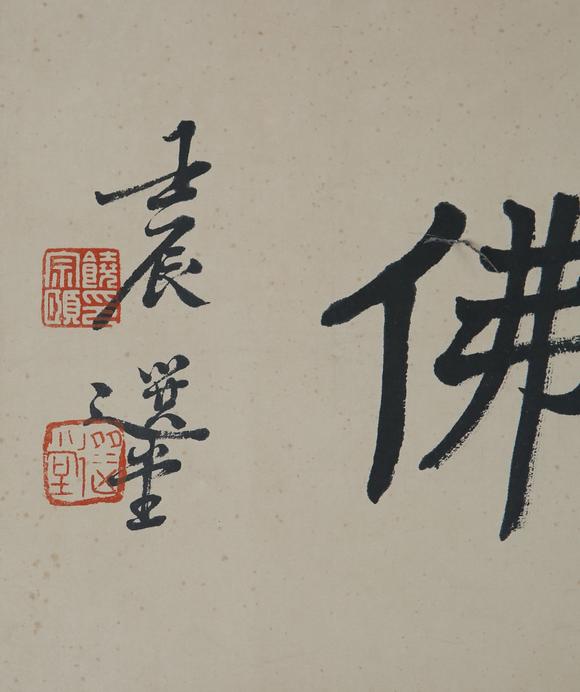 佛
壬辰
選堂
饒宗頤印
選堂